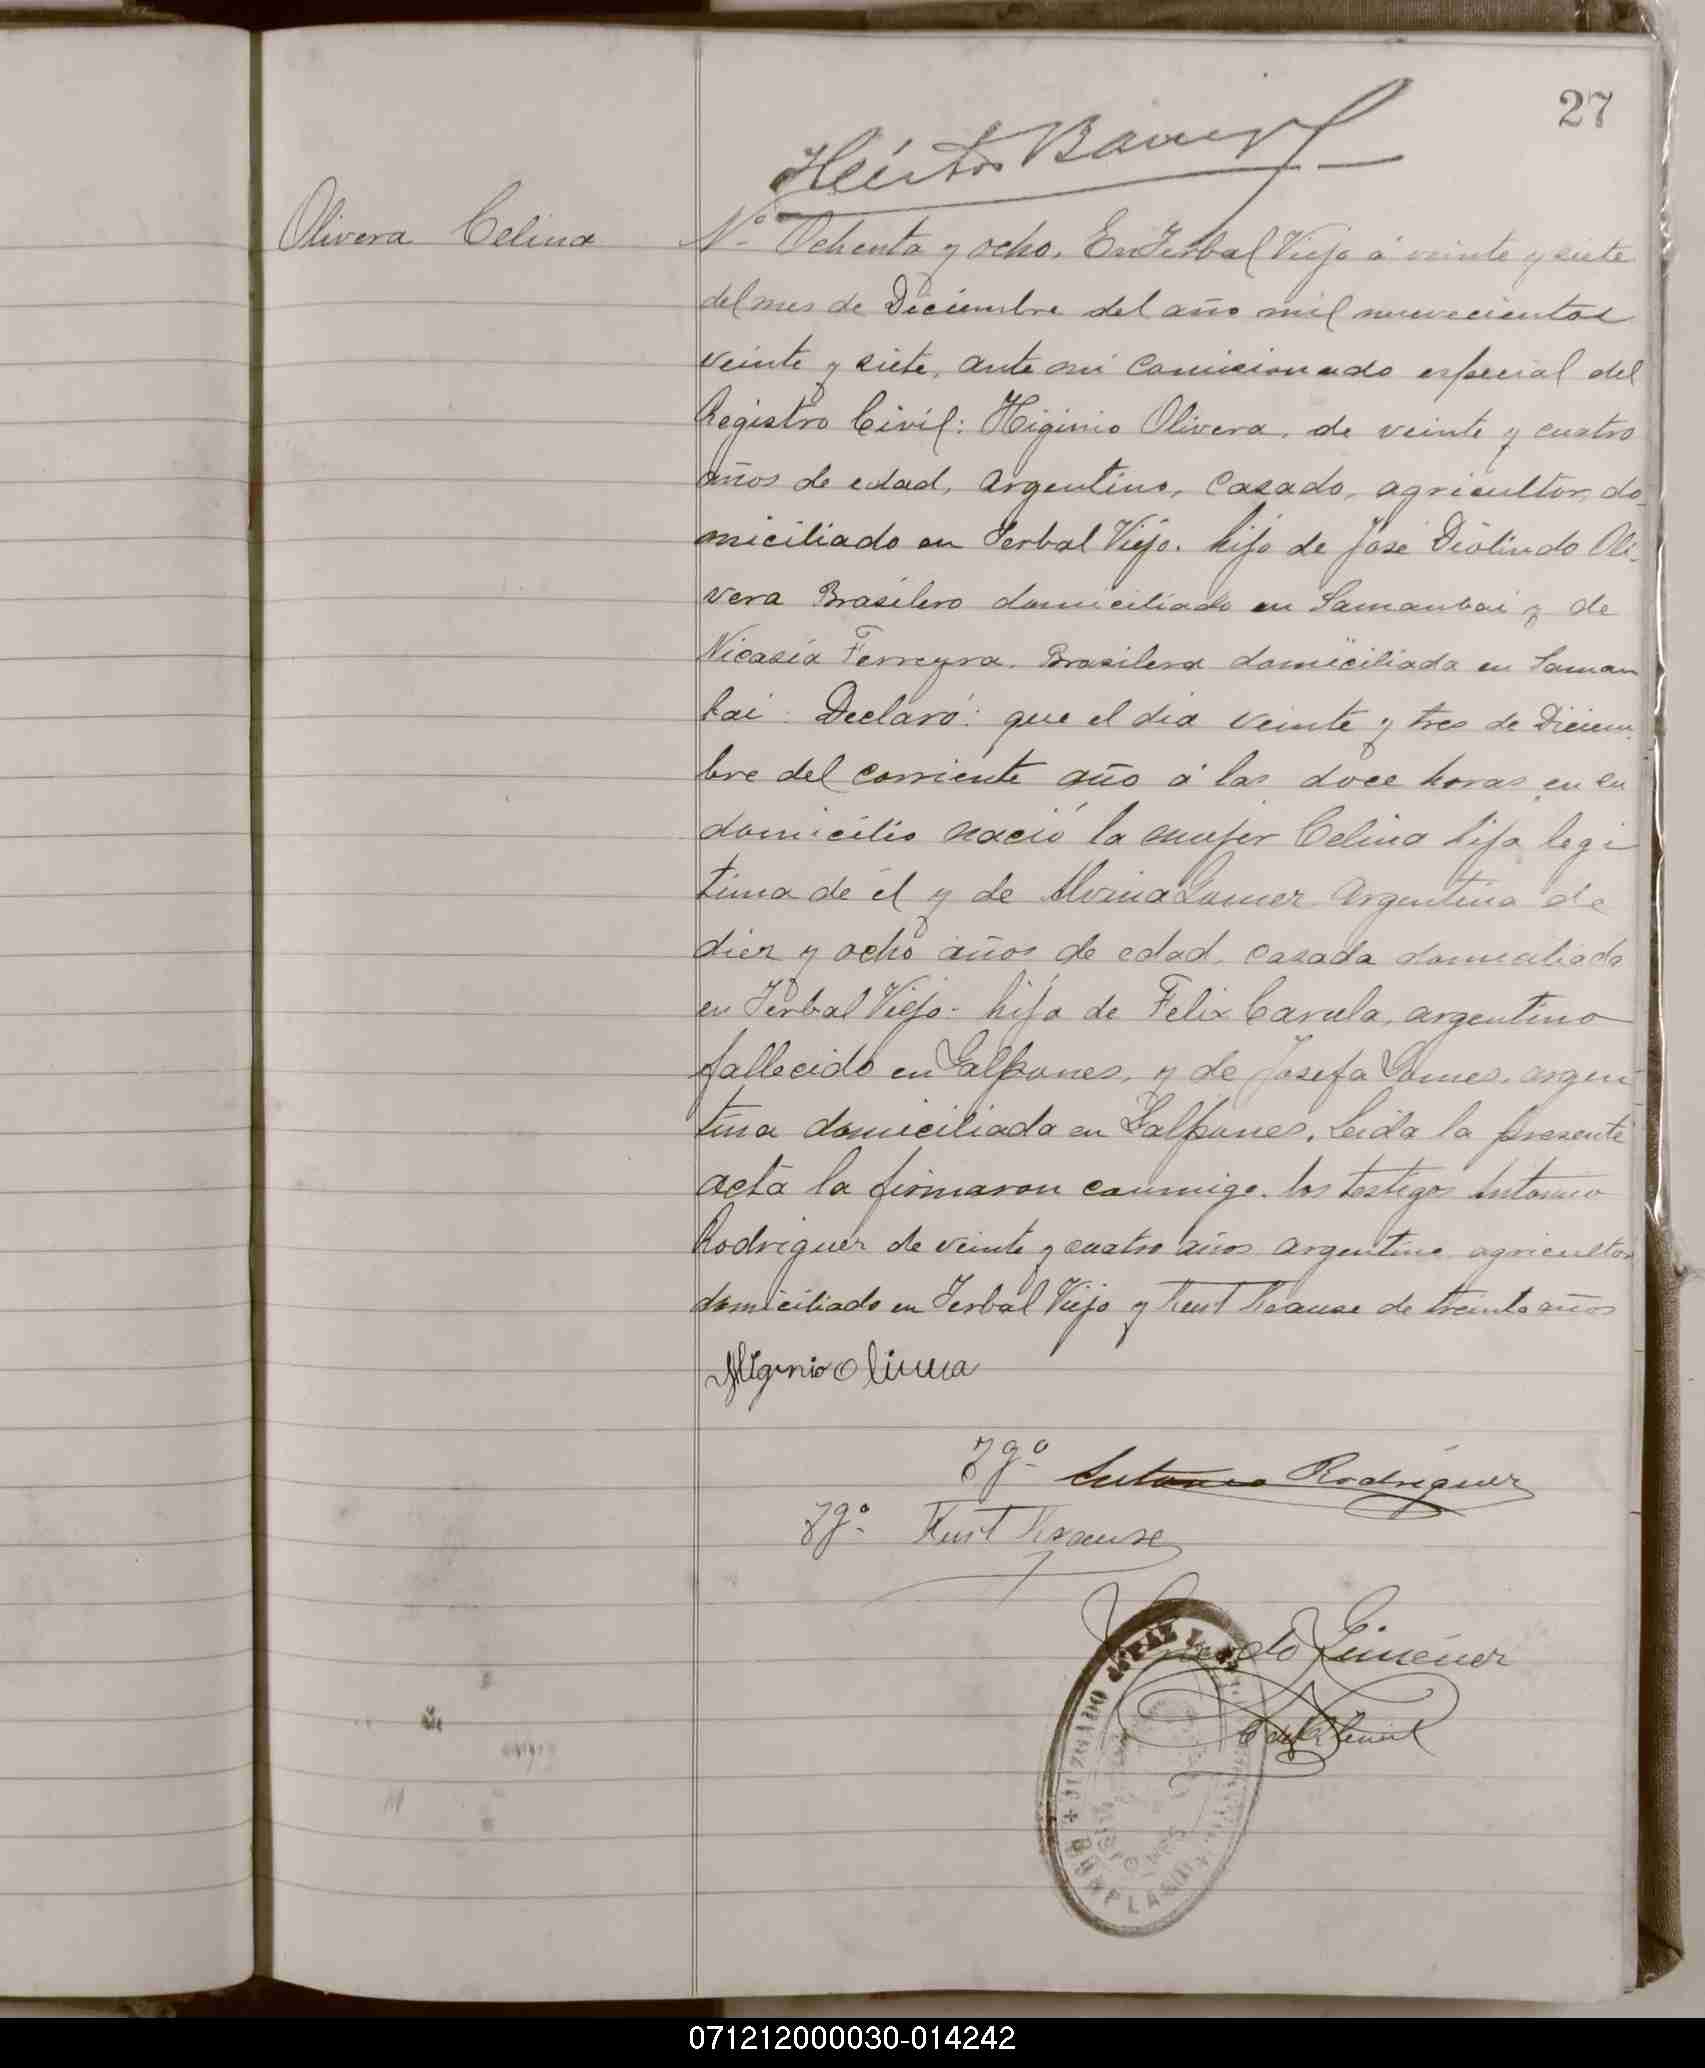 27
Héctor
Olivera Celina
Nº Ochenta y ocho. En Yerbal Viejo á veinte y siete
del mes de Diciembre del año mil nuevecientos
veinte y siete, ante mi Comisionado especial del
Registro Civil: Higinio Olivera, de veinte y cuatro
años de edad, Argentino, Casado, agricultor, do
miciliado en Yerbal Viejo. hijo de José Diolindo Oli-
vera Brasilero domiciliado en Samanbai y de
Nicasia Ferreyra. Brasilera domiciliada en Saman
bai: Declaró: que el dia veinte y tres de Diciem-
bre del corriente año á las doce horas en su
domicilio nació la mujer Celina hija legi
tima de él y de Alvina Gomez Argentina de
diez y ocho años de edad, casada domiciliada
en Yerbal Viejo- hija de Felix argentino
fallecido en Galpones, y de Josefa Gomes. argen
tina domiciliada en Galpones. Leida la presente
acta la firmaron conmigo. los testigos Antonio
Rodriguez de veinte y cuatro años argentino agricultor
domiciliado en Yerbal Viejo y Kurt Krause de treinta años
Higinio Olivera
Tgº Antonio Rodriguez
Tgº Kurt Krause
Giménez
JUZGADO DE PAZ
071212000030-014242